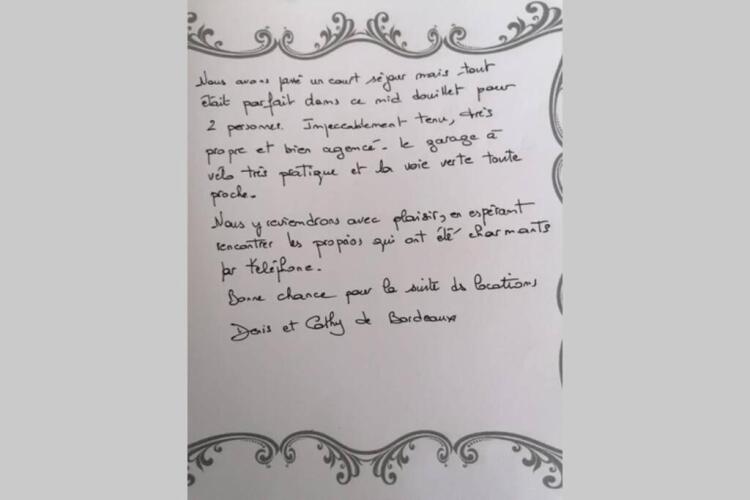 Nous avons passé un court séjour mais tout
était parfait dans ce nid douillet pour
2 personnes. Impeccablement tenu, très
propre et bien agencé. Le garage à
vélo très pratique et la voie verte toute
proche.
Nous y reviendrons avec plaisir, en espérant
rencontrer les proprios qui ont été charmants
par téléphone.
Bonne chance pour la suite des locations
Denis et Cathy de Bordeaux